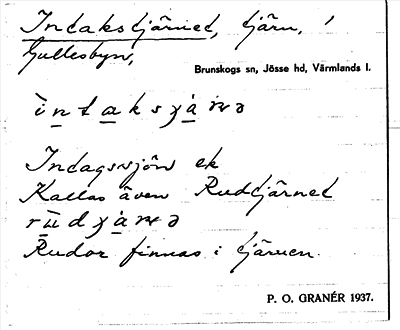 Indakstjärnet, tjärn,
Gullesbyn,
Brunskogs sn, Jösse hd, Värmlands l.
Indagssjön ek
Kallas även Rudtjärnet
Rudor finnas i tjärnen.
P. O. GRANÉR 1937.